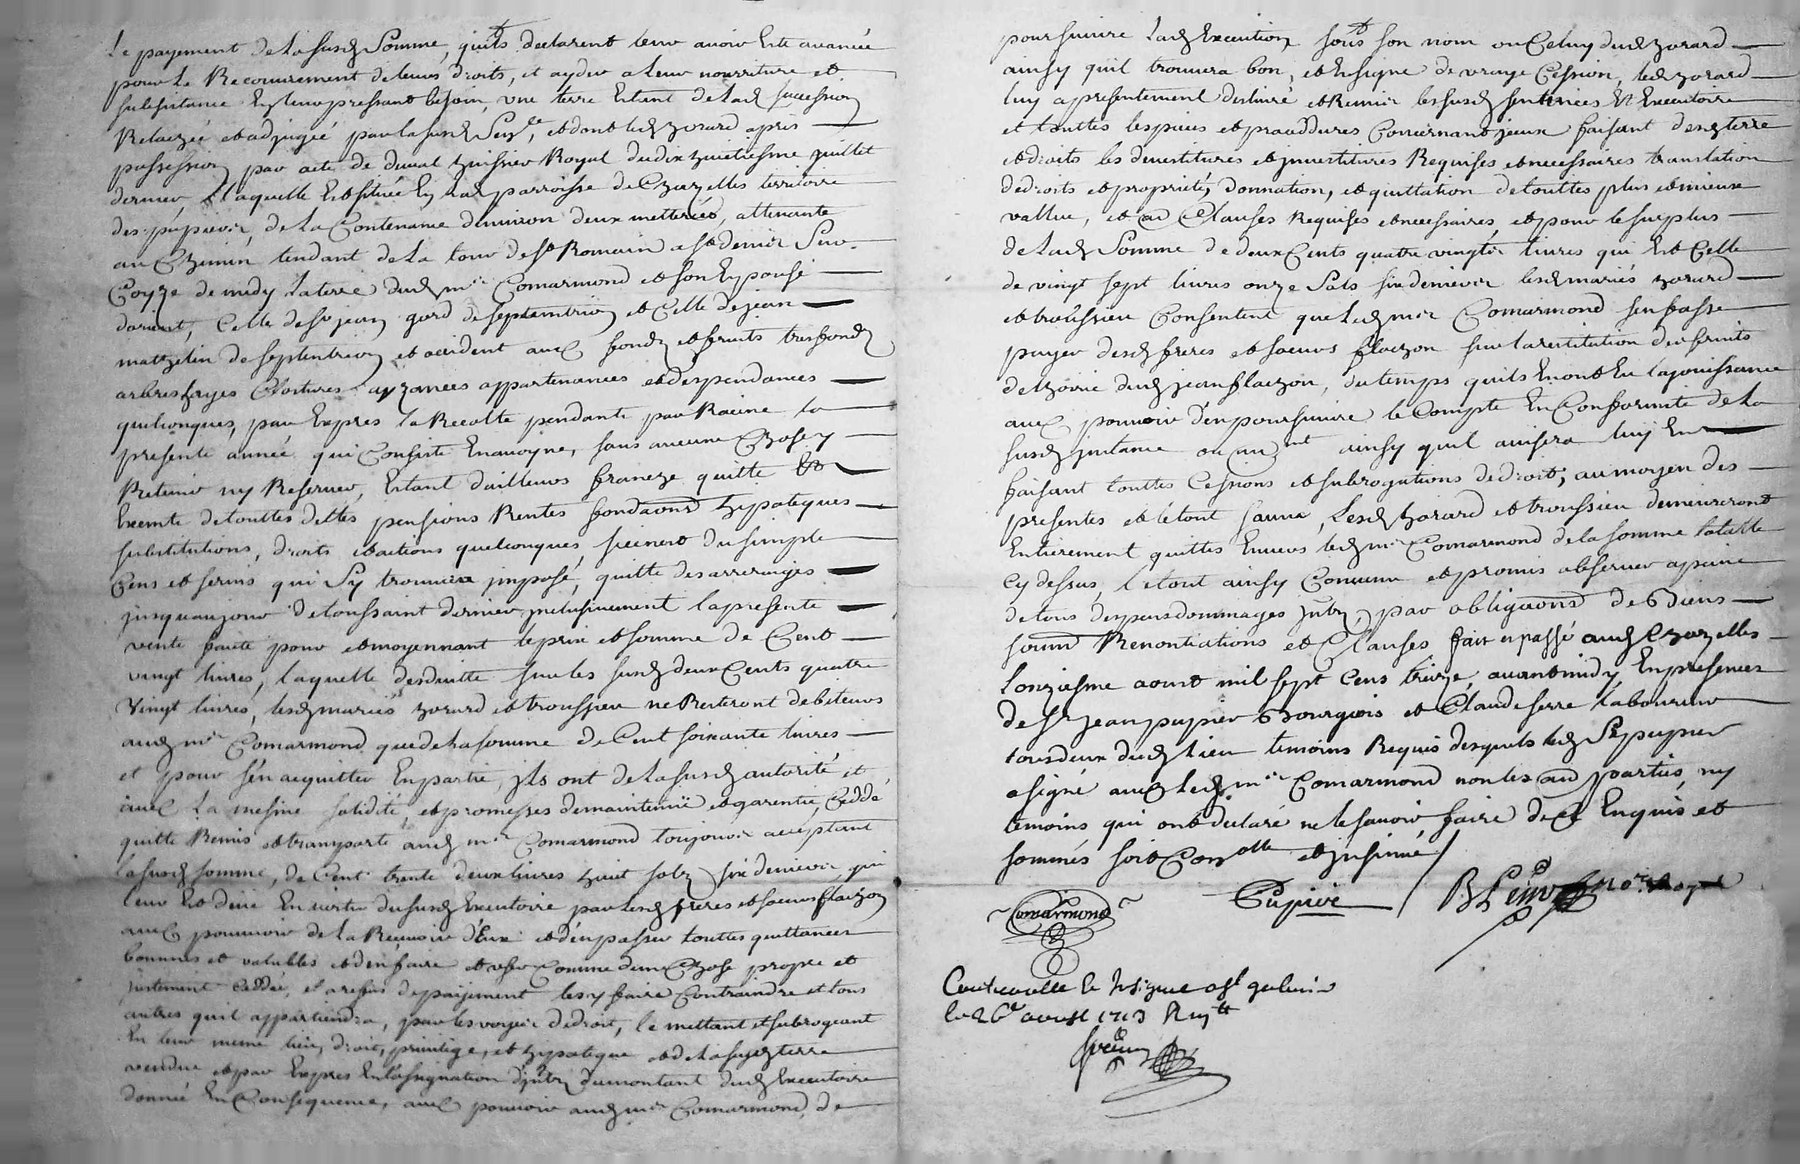 Le payement de la susd Somme, quils declarent leur avoir Esté avancée
pour Le Recouvrement de leurs droits, et ayder a leur nourriture et
subsistance En leur pressant besoin, une terre Estant de lad succession
Relaizée et adjugée par la susd et dont led zorard a pris
possession par acte de duval huissier Royal du dix huitiesme juillet
dernier, Laquelle Est située En lad parroisse de Chazelles territoire
des pupiere, de la Contenance denviron deux metterées, attenante
au Chemin tendant de la tour de St Romain a St denis Sur
Coyze de midy la terre dud mre Comarmond et son Epouse
dorient, Celle de Sr jean gord de septemtrion et Celle de jean
matzelin de septentrion et occident avec fondz et fruits tresfondz
arbres hayes Clostures ayzances appartenances et despendances
quelconques, par Expres la Recolte pendante par Racine la
presente année qui Consiste En avoyne, sans aucune Chose y
Retenir ny Reserver, Estant dailleurs franche quitte Et
Exemte de touttes debtes pensions Rentes fondaons hypoteques
substitutions, droits et actions quelconques, sinon du simple
Cens et servis qui Sy trouvera jmposé, quitte des arrerages
jusquau jour de toussaint dernier jnclusivement la presente
vente faite pour et moyennant le prix et somme de Cent
vingt livres, laquelle desduitte sur les susd deux Cents quatre
Vingt livres, lesd mariés zorard et troussieu ne Resteront debiteurs
aud mre Comarmond que de la somme de Cent soixante livres
et pour sen acquitter En partie, jls ont de la susd autorité et
avec la mesme solidité, et promesses de maintenir et garentir, Ceddé
quitté Remis et transporté aud mre Comarmond toujours acceptant
la susd somme, de Cent trente deux livres huit solz six deniers qui
leur Est deüe En vertu du susd Executoire par lesd freres et soeurs flaizon
avec pouvoir de la Recevoir dEux et den passer touttes quittances
bonnes et valables et den faire et user Comme dune Chose propre et
justement Ceddée, et a refus de payement les y faire Contraindre et tous
autres quil appartiendra, par les voyes de droit, le mettant et subrogeant
En leur meme lieu, droit, privilege, et hypoteque et de la susd terre
vendue et par Expres En lassignation djntz du montant dud Executoire
donné En Consequence, avec pouvoir aud mre Comarmond, de
poursuivre Lad Execution soubs son nom ou Celuy dud zorard
ainsy quil trouvera bon, et En signe de vraye Cession, led zorard
luy a presentement deslivré et Remis les susd sentences Et Executoire
et touttes les pieces et proceddures Concernant jceux faisant desd terre
et droits les devestitures et jnvestitures Requises et necessaires translation
de droits et proprieté, donnation, et quittation de touttes plus et mieux
vallue, et au Clauses Requises et necessaires, et pour le surplus
de lad Somme de deux Cents quatre vingts livres qui Est Celle
de vingt sept livres onze Sols six deniers lesd mariés zorard
et troussieu Consentent que led mre Comarmond sen fasse
payer desd freres et soeurs flaizon sur la restitution des fruits
de lhoirie dud jean flaizon, du temps quils En ont Eu la jouissance
avec pouvoir den poursuivre le Compte En Conformité de la
susd jnstance ou ainsy quil avisera luy En
faisant touttes Cessions et subrogations de droit, au moyen des
presentes et le tout sauné, Lesd zorard et troussieu demeureront
Entierement quittes Envers led mre Comarmond de la somme totalle
Cy dessus, le tout ainsy Convenu et promis observer a peine
de tous despens dommages jntz, par obligaons de Biens
soumns Renontiations et Clauses fait et passé aud Chazelles
Lonziesme aoust mil sept Cens treize, avant midy, En presences
de Sr jean pupier Bourgeois et Claude serre laboureur
tous deux dud Lieu temoins Requis desquels led Sr pupier
a signé avec led mre Comarmond non les au parties, ny
temoins qui ont declaré ne le savoir faire de Ce Enquis et
sommés soit Conollé et jnsinué
Comarmond Pupier
Controollé
le 26e aoust 1713